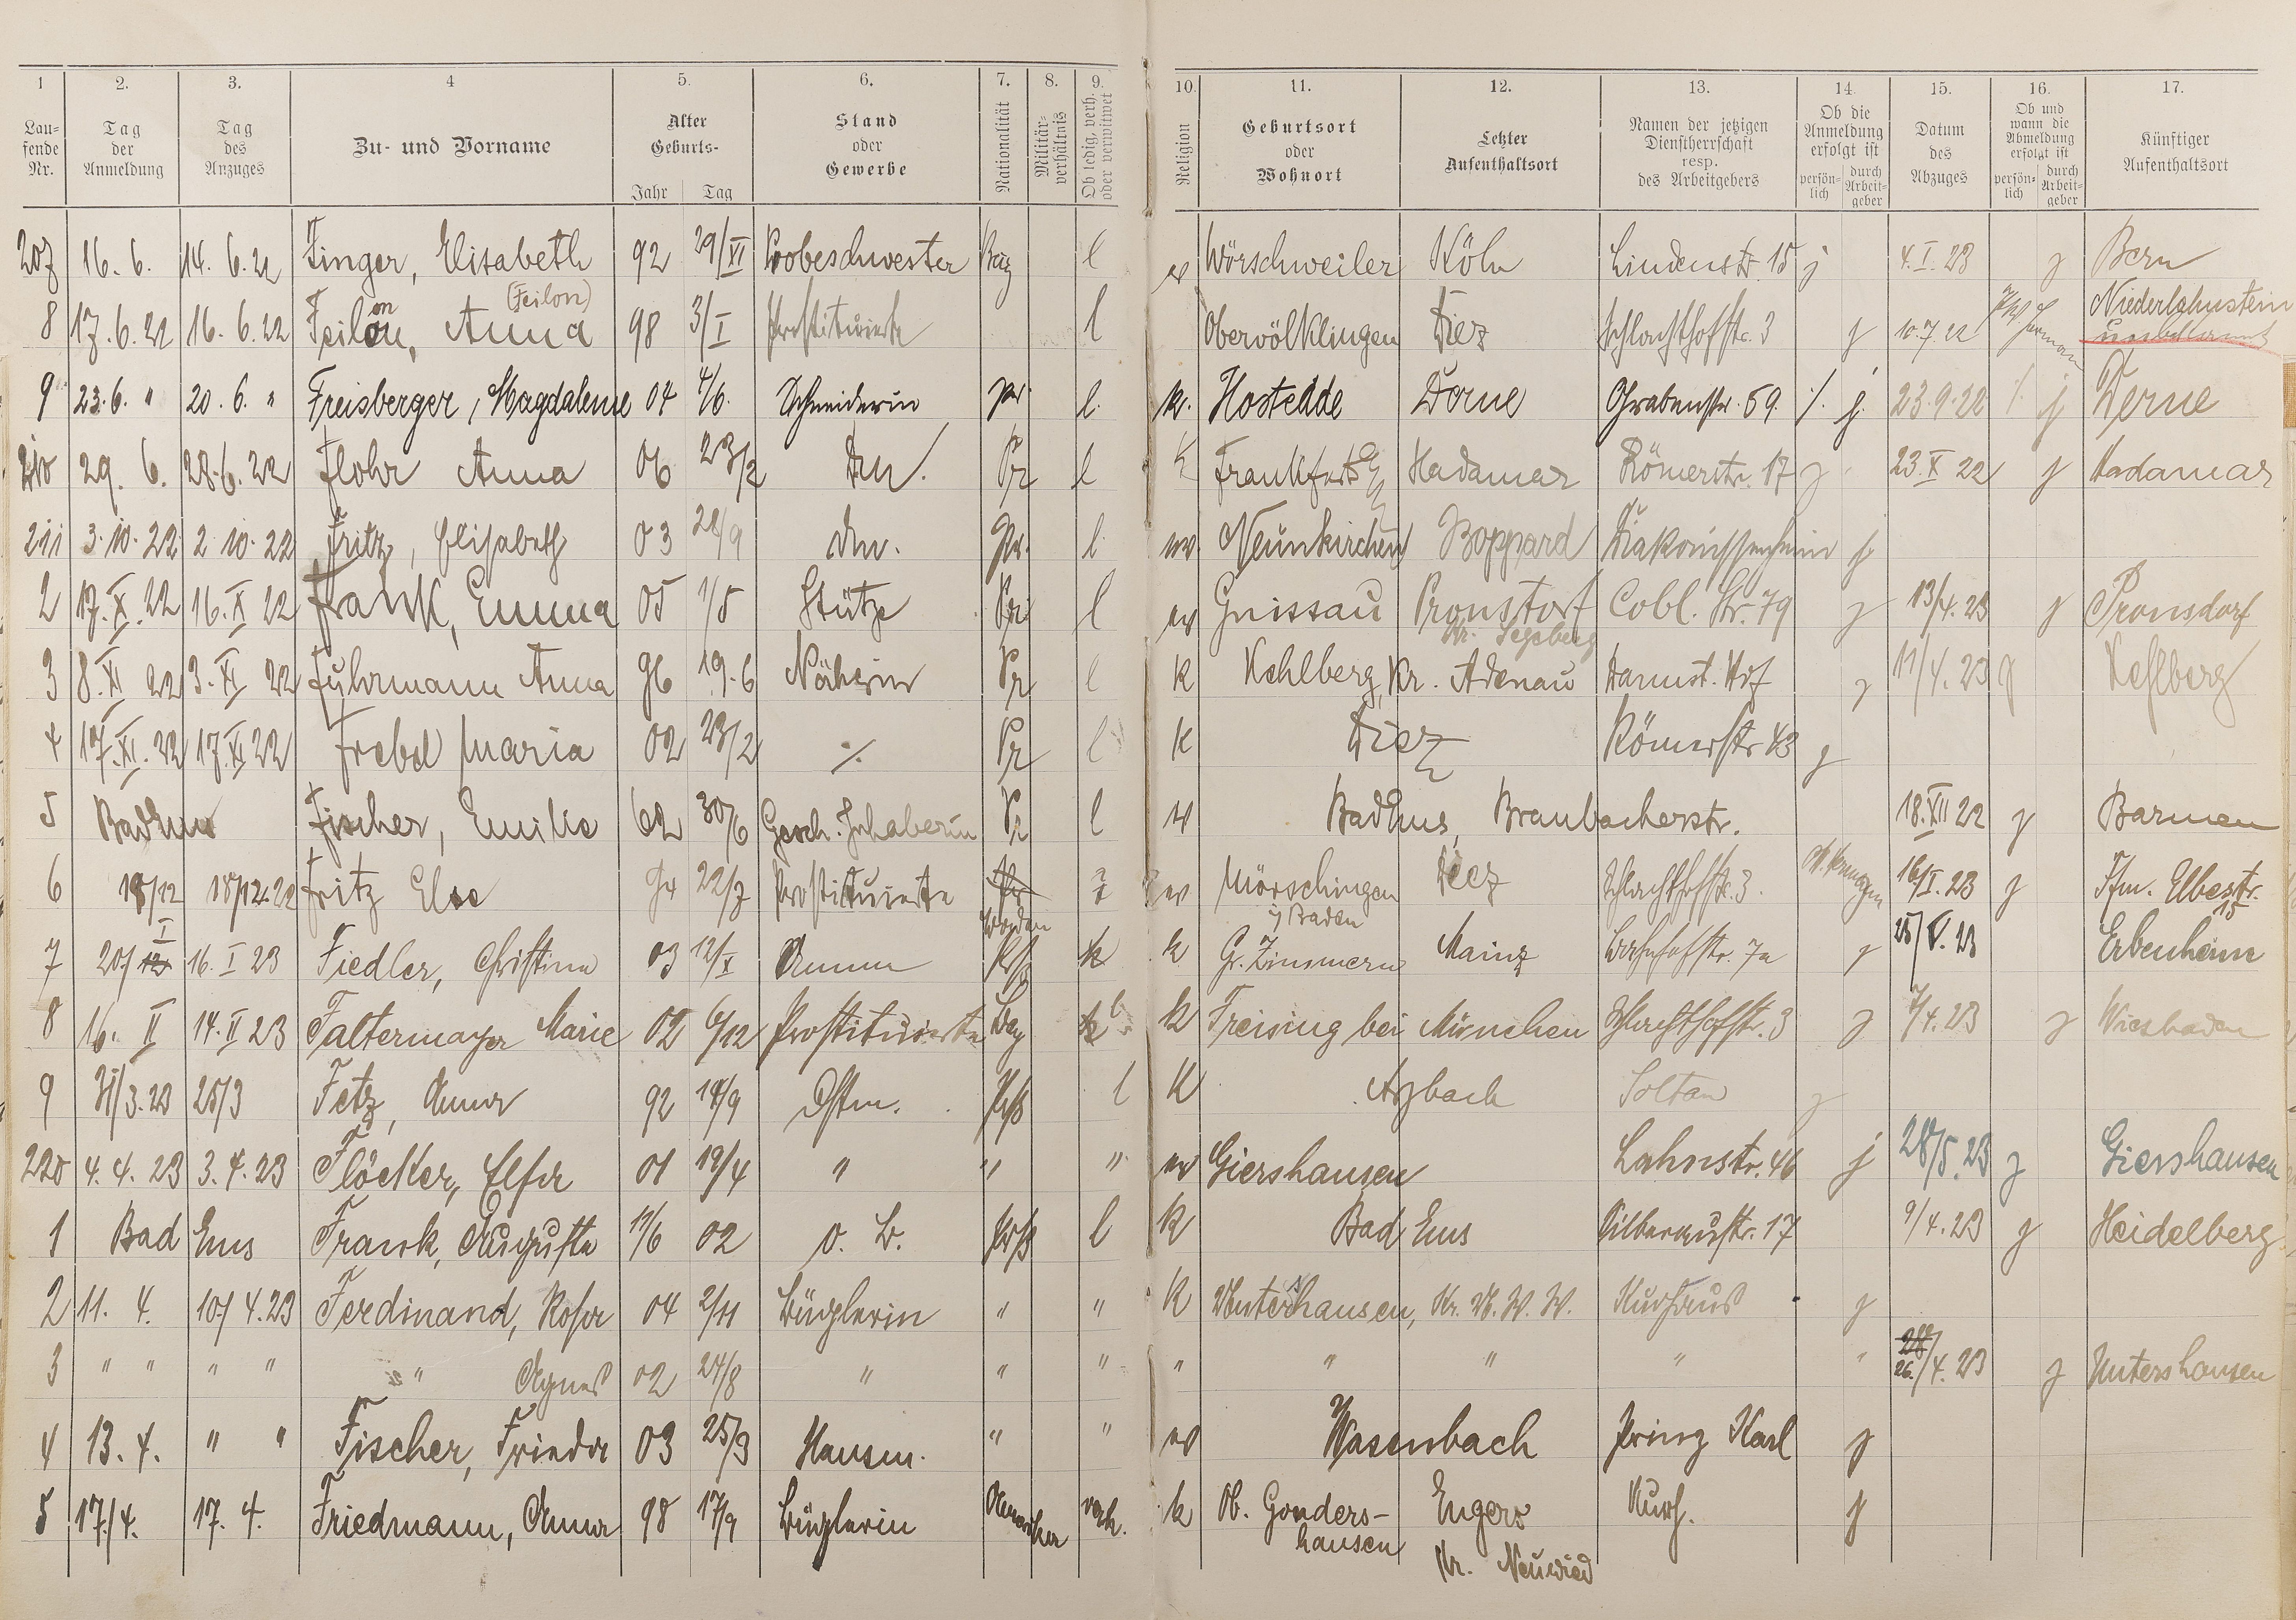 1 2. 3. 4 5. 6. 7. 8. 9. 10. 11. 12. 13. 14. 15. 16. 17.
Lau-
fende
Nr.
Tag
der
Anmeldung
Tag
des
Anzuges
Zu- und Vorname
Alter
Geburts-
Jahr Tag
Stand
oder
Gewerbe
Nationalität
Militär-
verhältnis
Ob ledig, verh.
oder verwitwet
Religion
Geburtsort
oder
Wohnort
Letzter
Aufenthaltsort
Namen der jetzigen
Dienstherrschaft
resp.
des Arbeitgebers
Ob die
Anmeldung
erfolgt ist
persön-
lich
durch
Arbeit-
geber
Datum
des
Abzuges
Ob und
wann die
Abmeldung
erfolgt ist
persön-
lich
durch
Arbeit-
geber
Künftiger
Aufenthaltsort
207 16. 6. 14. 6. 22 Finger, Elisabeth 92 29/XI Probeschwester Bay l ev Wörschweiler Köln Lindenstr 15 j 4. I. 23 j Bern
(Feilon)
8 17. 6. 22 16. 6. 22 Anna 98 3/I Prostituierte l Obervölklingen Diez Schlachthofstr. 3 j 10. 7. 22 Niederlahnstein
9 23. 6. " 20. 6. " Freisberger, Magdalene 04 4/6. Schneiderin pr. l. k. Hostedde Derne Grabenstr. 59. /. j. 23. 9. 22 /. j Derne
210 29. 6. 28. 6. 22 Flohr Anna 06 23/2 Dm. Pr l K Frankfurt Hadamar Römerstr. 17 j 23. X 22 j Hadamar
211 3. 10. 22 2. 10. 22 Fritz, Elisabeth 03 dm. pr. l. ev. Neunkirchen Boppard Diakonissenheim j
2 17. X. 22 16. X 22 Frank, Emma 05 1/5 Stütze Pr l ev Gnissau Pronstorf Cobl. Str. 79 j 13/4. 23 j Pronsdorf
Kr. Segeberg
3 8. XI 22 3. XI 22 Fuhrmann Anna 96 19. 6 Näherin Pr l k Kehlberg, Kr. Adenau Darmst. Hof j 11/4. 23 j Kehlberg
4 17. XI. 22 17. XI 22 Frebel Maria 02 23/2 ./. Pr l k Diez Römerstr 43 j
5 Bad Ems Fischer, Emilie 62 30/6 Gesch. Inhaberin Pr l Bad Ems, Braubacherstr. 18. XII 22 j Barmen
6 18/12 18/12. 22 Fritz Else 94 22/7 Prostituierte ev Mörschingen Diez Schlachthofstr. 3. 16/I. 23 j Ffm. Elbestr.
15
i/ Baden
7 20/ I 16. I 23 Fiedler, Christine 03 12/X Amme k Gr. Zimmern Mainz Bahnhofstr. 7a j 25/V. 23 Erbenheim
8 16. II 14. II 23 Faltermayer Marie 02 6/12 Prostituierte Bay l k Freising bei München Schlachthofstr. 3 j 7/4. 23 j Wiesbaden
9 31/3. 23 25/3 Fetz, Anna 92 14/9 Dstm. Prß l K Arzbach Soltan j
220 4. 4. 23 3. 4. 23 Flöcker, Elsa 01 19/4 " " " ev Giershausen Lahnstr. 46 j 28/5. 23 j Giershausen
1 Bad Ems Frank, Auguste 11/6 02 o. B. Prß l k Bad Ems Silberaustr. 17 9/4. 23 j Heidelberg
2 11. 4. 10/ 4. 23 Ferdinand, Rosa 04 2/11 Büglerin " " K Untershausen, Kr. U. W. W. Kurhaus j
3 " " " " " Agnes 02 24/8 " " " " " " " " 26./4. 23 j Untershausen
4 13. 4. " " Fischer, Frieda 03 25/3 Hausm. " " ev Wasenbach Prinz Karl j
5 17/4. 17. 4. Friedmann, Anna 98 17/9 Büglerin verh. k Ob. Gonders- Engers Kurh. j
hausen Kr. Neuwied